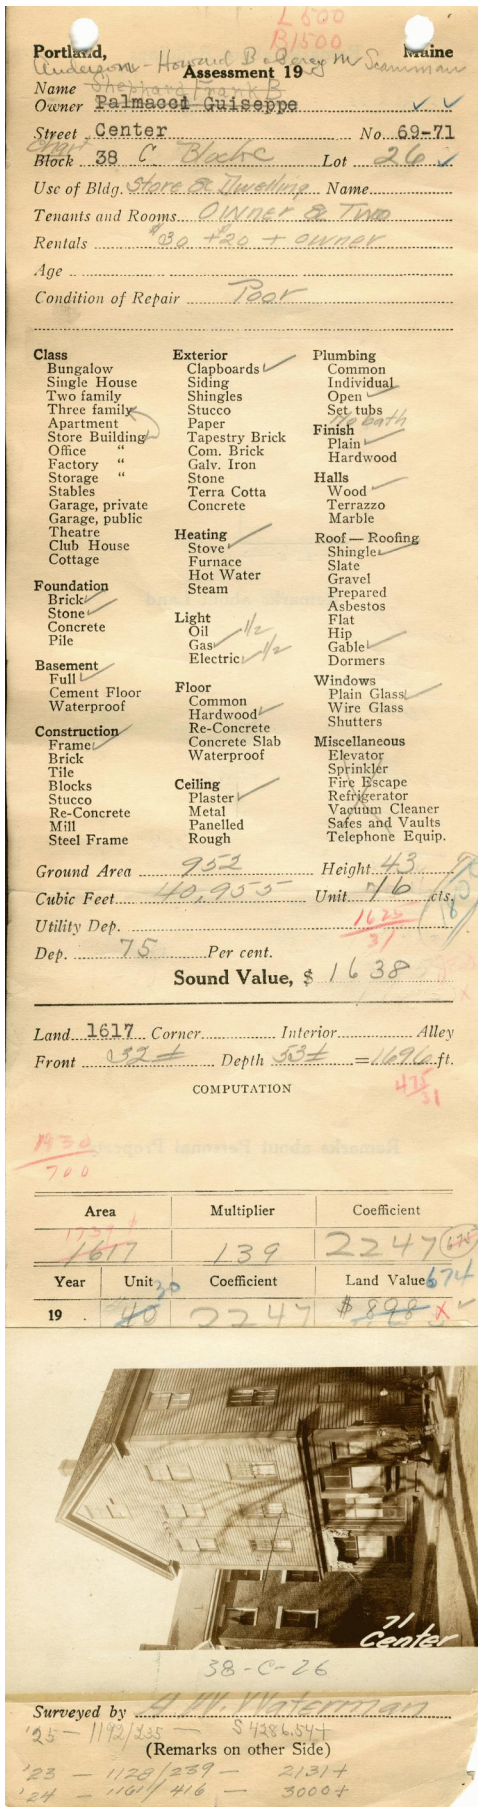 L 500
B 1500
Portland, Maine
Anderson - Howard B & Grey M Scamman
Assessment 19
Name Shephard Frank B
Owner Palmacci Guiseppe
Street Center No. 69-71
Chart
Block 38 C Block C Lot 26
Use of Bldg. Store & Dwelling Name
Tenants and Rooms Owner & Two
Rentals $30 + $20 + owner
Age
Condition of Repair Poor
Class
Bungalow
Single House
Two family
Three family
Apartment
Store Building
Office "
Factory "
Storage "
Stables
Garage, private
Garage, public
Theatre
Club House
Cottage
Foundation
Brick
Stone
Concrete
Pile
Basement
Full
Cement Floor
Waterproof
Construction
Frame
Brick
Tile
Blocks
Stucco
Re-Concrete
Mill
Steel Frame
Exterior
Clapboards
Siding
Shingles
Stucco
Paper
Tapestry Brick
Com. Brick
Galv. Iron
Stone
Terra Cotta
Concrete
Heating
Stove
Furnace
Hot Water
Steam
Light
Oil
Gas 1/2
Electric 1/2
Floor
Common
Hardwood
Re-Concrete
Concrete Slab
Waterproof
Ceiling
Plaster
Metal
Panelled
Rough
Plumbing
Common
Individual
Open
Set tubs
No bath
Finish
Plain
Hardwood
Halls
Wood
Terrazzo
Marble
Roof — Roofing
Shingle
Slate
Gravel
Prepared
Asbestos
Flat
Hip
Gable
Dormers
Windows
Plain Glass
Wire Glass
Shutters
Miscellaneous
Elevator
Sprinkler
Fire Escape
Refrigerator
Vacuum Cleaner
Safes and Vaults
Telephone Equip.
Ground Area 952 Height 43
Cubic Feet 40,955 Unit 16 cts.
Utility Dep. 1625
31
Dep. 75 Per cent.
Sound Value, $ 1638
Land 1617 Corner Interior Alley
Front 32± Depth 53± = 1696 ft.
475
31
COMPUTATION
1930
700
Area Multiplier Coefficient
1617 139 2247 675
Year Unit 30 Coefficient Land Value 674
19 40 2247 $898 X
71
Center
38-C-26
Surveyed by H W. Waterman
'25 — 1192/235 — $4286.54+
(Remarks on other Side)
'23 — 1128/239 — 2131+
'24 — 1161/416 — 3000+